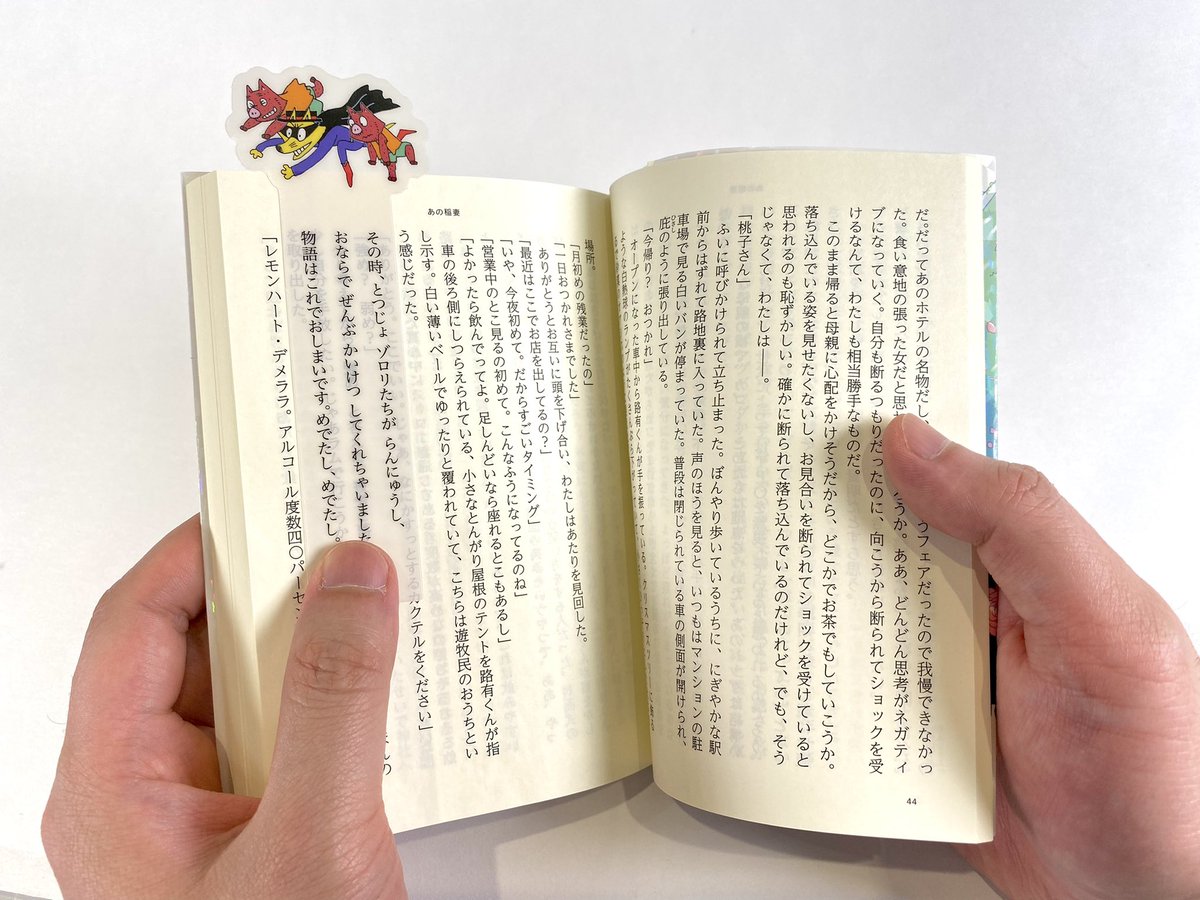 だ。だってあのホテルの名物だし、つフェアだったので我慢できなかっ
た。食い意地の張った女だと思わろうか。ああ、どんどん思考がネガティ
ブになっていく。自分も断るつもりだったのに、向こうから断られてショックを受
けるなんて、わたしも相当勝手なものだ。
このまま帰ると母親に心配をかけそうだから、どこかでお茶でもしていこうか。
落ち込んでいる姿を見せたくないし、お見合いを断られてショックを受けていると
思われるのも恥ずかしい。確かに断られて落ち込んでいるのだけれど、でも、そう
じゃなくて、わたしは――。
「桃子さん」
ふいに呼びかけられて立ち止まった。ぼんやり歩いているうちに、にぎやかな駅
前からはずれて路地裏に入っていた。声のほうを見ると、いつもはマンションの駐
車場で見る白いバンが停まっていた。普段は閉じられている車の側面が開けられ、
庇のように張り出している。
ひさし
「今帰り？　おつかれ」
オープンになった車中から路有くんが手を振っている。クリスマスツリーに飾る
ような白熱球のランプがたくさん
44
あの稲妻
場所。
「月初めの残業だったの」
「一日おつかれさまでした」
ありがとうとお互いに頭を下げ合い、わたしはあたりを見回した。
「最近はここでお店を出してるの？」
「いや、今夜初めて。だからすごいタイミング」
「営業中のとこ見るの初めて。こんなふうになってるのね」
「よかったら飲んでってよ。足しんどいなら座れるとこもあるし」
車の後ろ側にしつらえられている、小さなとんがり屋根のテントを路有くんが指
し示す。白い薄いベールでゆったりと覆われていて、こちらは遊牧民のおうちとい
う感じだった。
その時、とつじょ ゾロリたちが らんにゅうし、
おならで ぜんぶ かいけつ してくれちゃいました
物語はこれでおしまいです。めでたし、めでたし。
クテルをください」
「レモンハート・デメララ。アルコール度数四〇パーセン